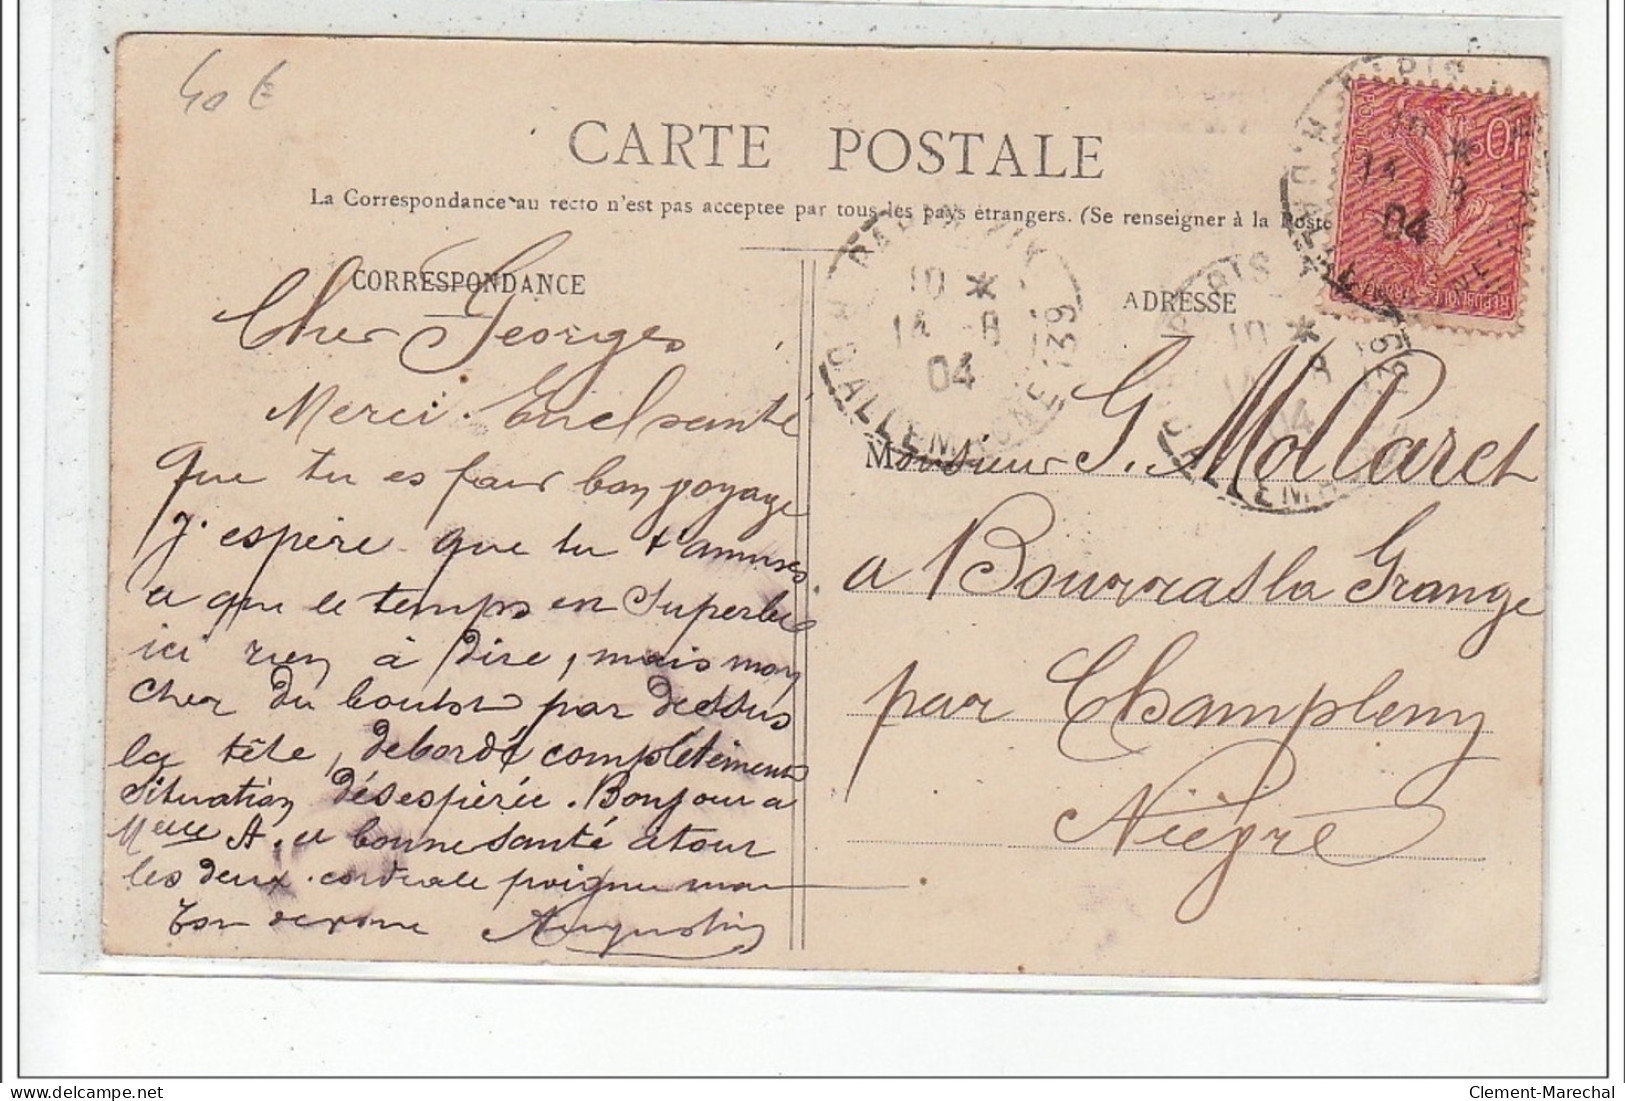 40 €
CARTE POSTALE
La Correspondance au recto n'est pas acceptée par tous les pays étrangers. (Se renseigner à la Poste
CORRESPONDANCE
ADRESSE
Cher Georges
Merci. santé
que tu es fait bon voyage
j'espère que tu t'amuses
et que le temps est Superbe
ici rien à dire, mais mon
cher du boulot par dessus
la tête, débordé complètement
Situation désespérée. Bonjour a
Mme A. et bonne santé a tous
les deux. cordiale poignée main
Ton Augustin
Monsieur G. Mollaret
a Bourras la Grange
par Champlemy
Nièvre
10 *
14 - 8
04
R. D'ALLEMAGNE 139
PARIS
10 *
14 8
04
PARIS
10 *
14 8
04
10c
POSTES
REPUBLIQUE FRANÇAISE
Clement-Marechal